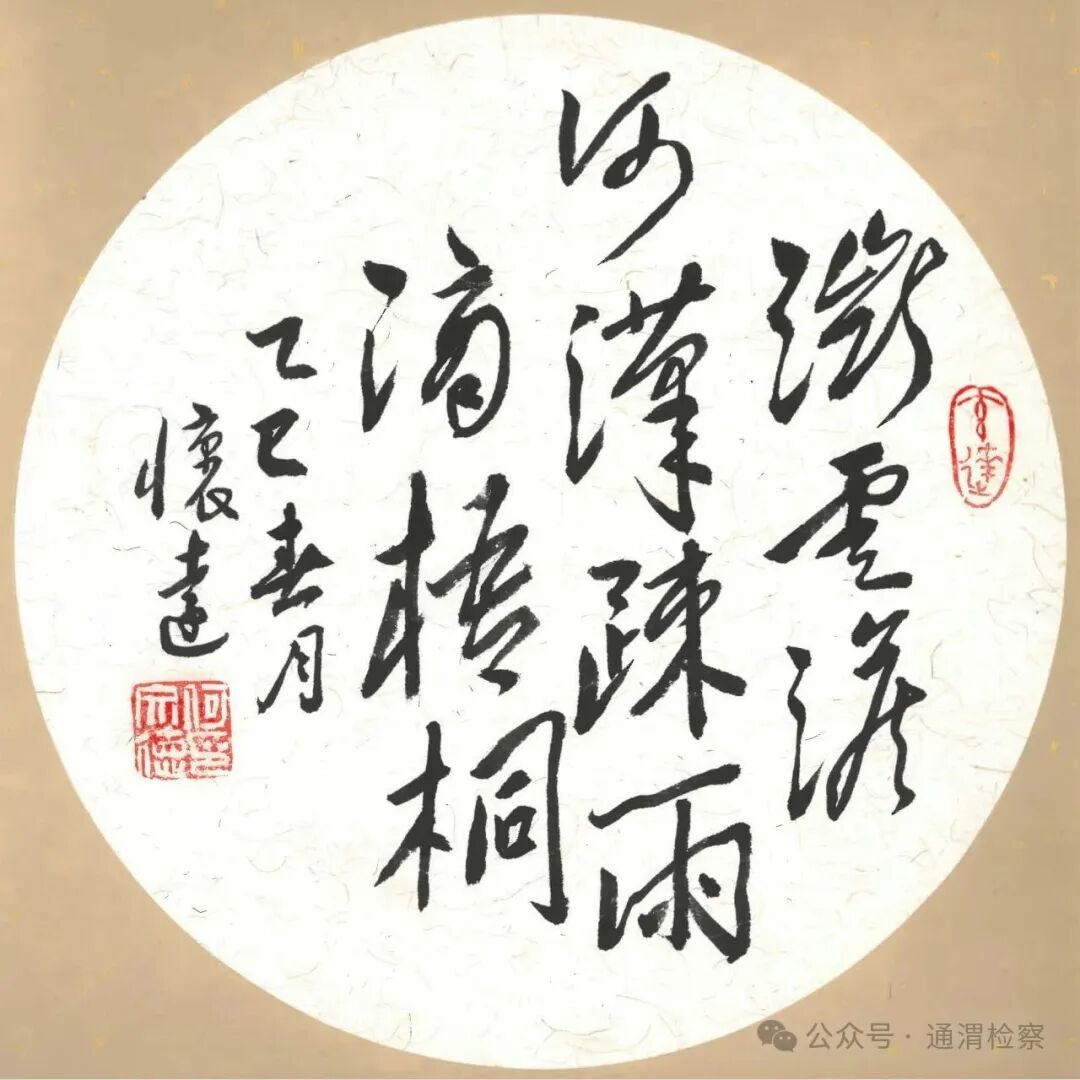 微雲淡
河漢疎雨
滴梧桐
乙巳春月
懷達
公众号 · 通渭检察